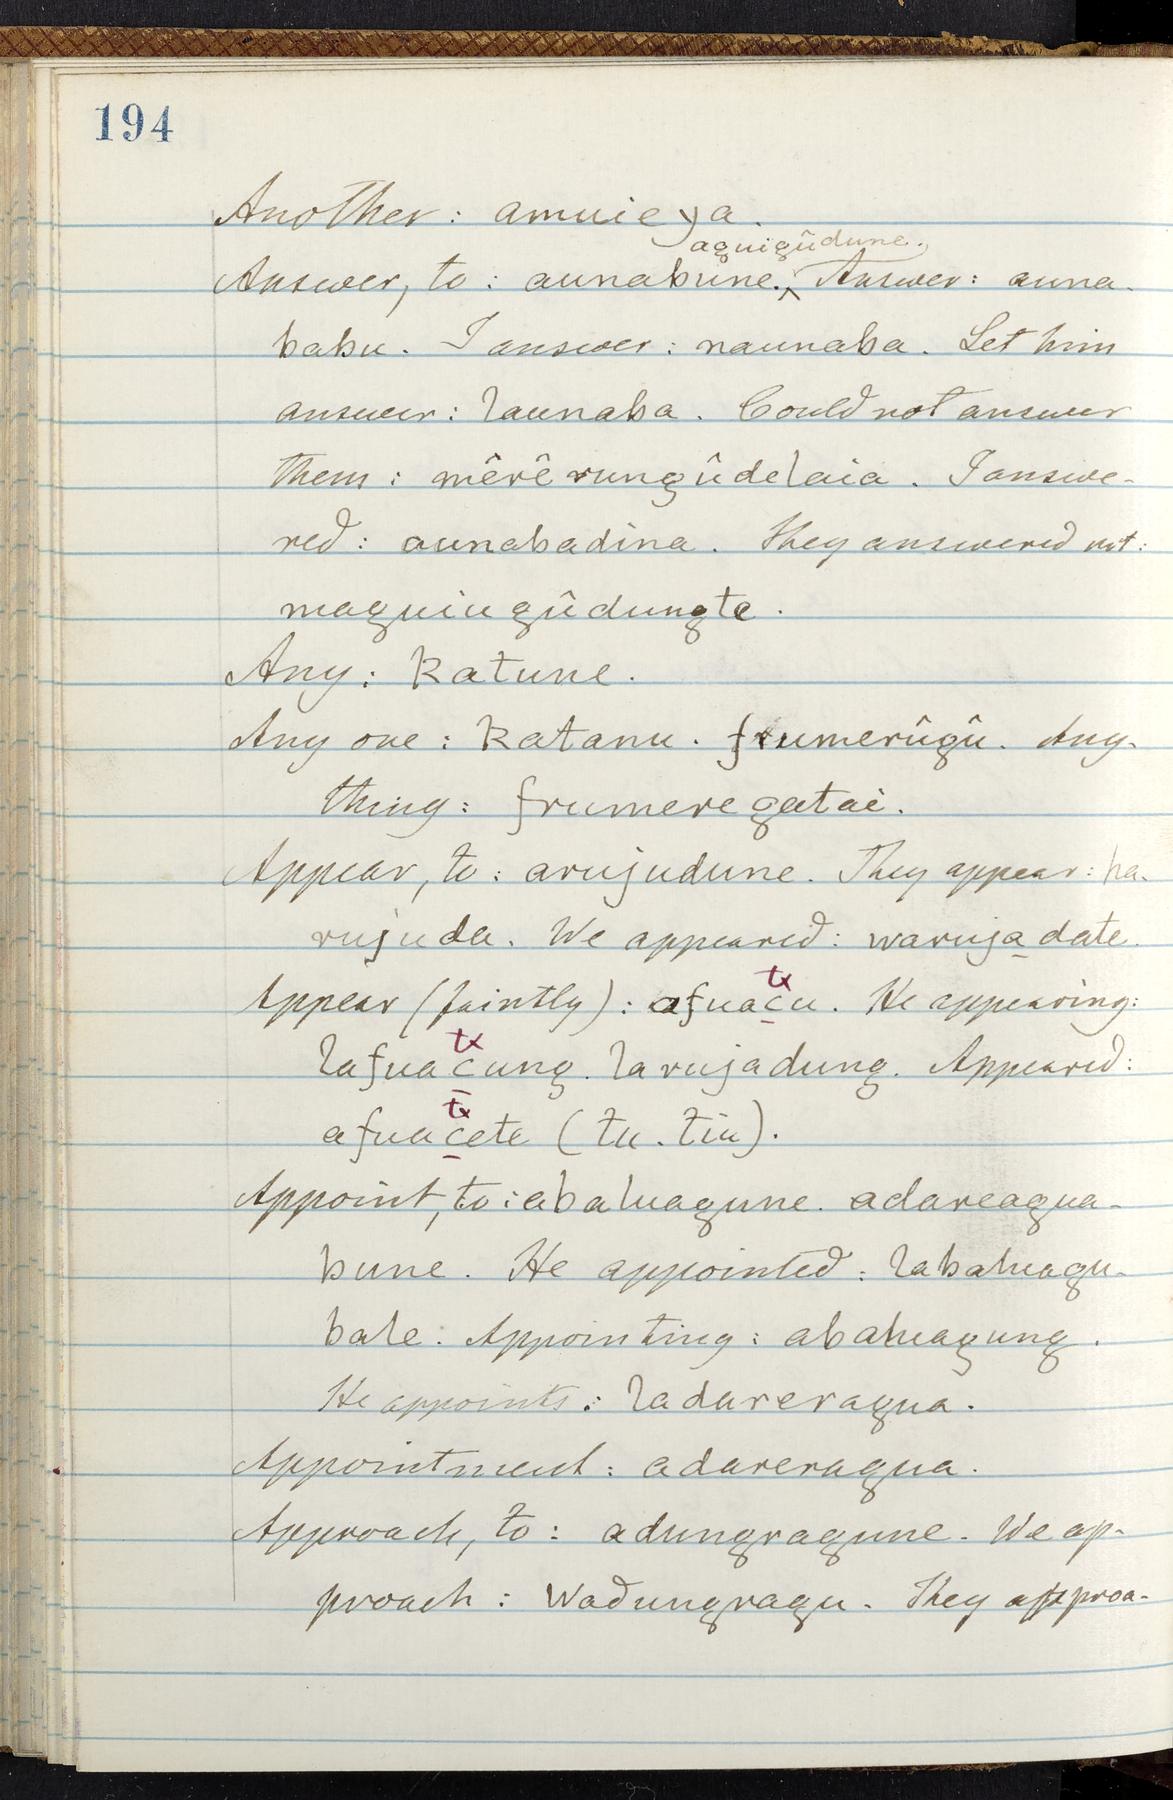 194
Another: amuieya.
aguigûdune.,
Answer, to: aunabune.^ Answer: auna-
babu. I answer: naunaba. Let him
answer: launaba. Could not answer
them: mêrê rungûdelaia. I answe-
red: aunabadina. They answered not:
maguiu gûdungte.
Any: katune.
Any one: katanu. frumerûgû. Any-
thing: frumere gatai.
Appear, to: arujudune. They appear: ha-
rujuda. We appeared: waruja date.
tx
Appear (faintly): afuacu. He appearing:
tx
lafuacung. larujadung. Appeared:
tx
afuacete (tu. tiu).
Appoint, to: abaluagune. adareagua-
bune. He appointed: labaluagu-
bale. Appointing: abaluagung.
He appoints: ladareragua.
Appointment: adareragua.
Approach, to: adungragune. We ap-
proach: wadungragu. They approa-